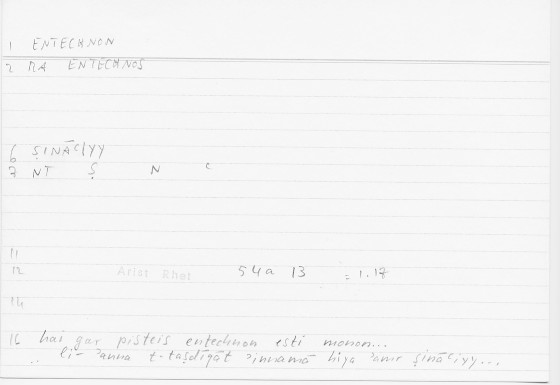 1 ENTECHNON
2 MA ENTECHNOS
6 ṢINĀʿIYY
7 NT Ṣ N ʿ
11
12 Arist Rhet 54a 13 = 1.17
14
16 hai gar pisteis entechnon esti monon...
.. li-ʾanna t-taṣdīqāt ʾinnamā hiya ʾamr ṣināʿiyy...